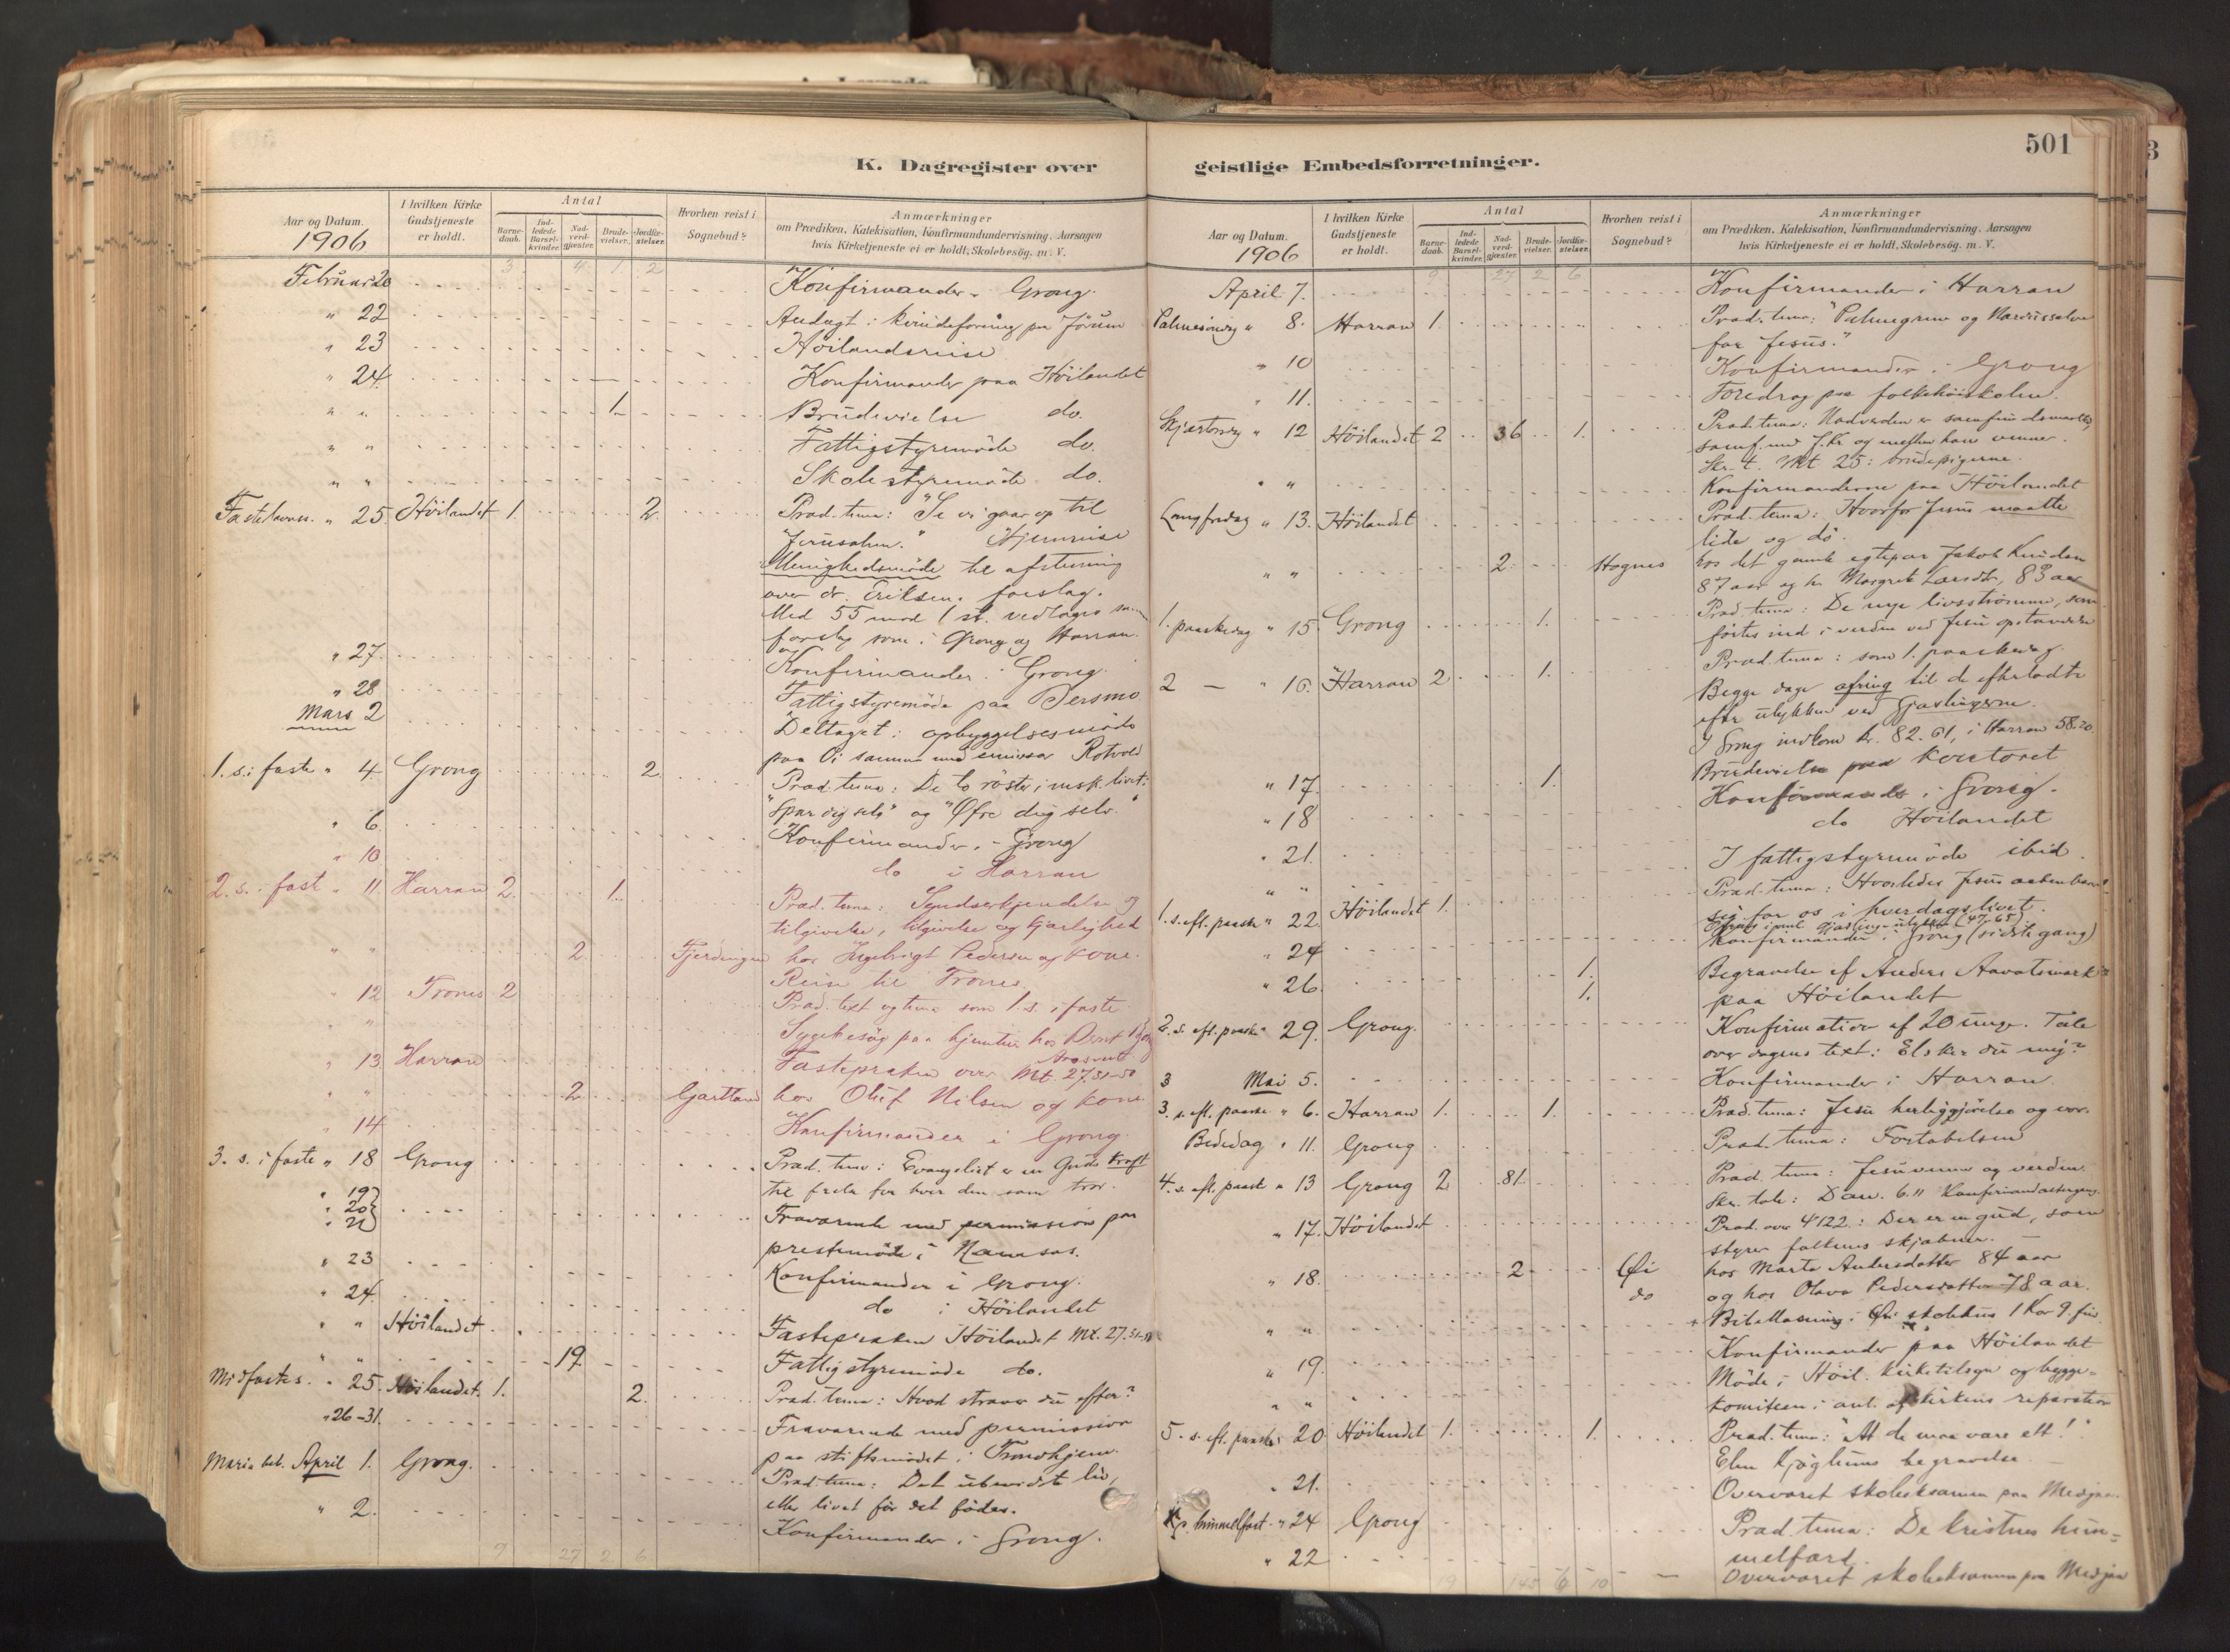 501
K. Dagregister over
Aar og Datum.
1906
I hvilken Kirke
Gudstjeneste
er holdt.
Antal
Barne-
daab.
Ind-
ledede
Barsel-
kvinder.
Nad-
verd-
gjæster.
Brude-
vielser.
Jordfæ-
stelser.
Hvorhen reist i
Sognebud?
Anmærkninger
om Prædiken, Katekisation, Konfirmandundervisning, Aarsagen
hvis Kirketjeneste ei er holdt, Skolebesög, m. V.
3 4 1 2
Februar 20 Konfirmander i Grong.
" 22 Andagt i kvindeforening paa Jørum
" 23 Høilandsreise
" 24 Konfirmander paa Høilandet
" " 1. Brudevielse do.
" " Fattigstyremøde do.
" " Skolestyremøde do.
Fastelavns. " 25. Høilandet 1. 2. Præd. tema: "Se vi gaar op til
Jerusalem." Hjemreise
Menighedsmøde til afstemning
over dr. Eriksens forslag.
Med 55 mod 1 st. vedtages samme
forslag som i Grong og Harran.
" 27. Konfirmander i Grong.
" 28 Fattigstyremøde paa
Mars 2 Deltaget i opbyggelsesmøde
paa Øi sammen med emissær Rotvold
1. s. i faste " 4. Grong 2. Præd. tema: De to røster i msk.livet:
"Spar dig selv" og "Ofre dig selv."
" 6. Konfirmander i Grong
" 10 do i Harran
2. s. i faste " 11. Harran 2. 1. Præd. tema: Syndserkjendelse og
tilgivelse, tilgivelse og kjærlighed
" " 2. Fjerdingen hos Ingebrigt Pedersen og kone.
Reise til Trones
" 12 Trones 2 Præd. text og tema som 1. s. i faste
" Sygebesøg paa hjemtur hos Bernt
" 13. Harran Fastepræken over Mt. 27.31-50
" " 2. Gartland hos Oluf Nilsen og kone.
" 14 Konfirmander i Grong.
3. s. i faste " 18 Grong Præd. tema: Evangeliet er en Guds kraft
til frelse for hver den som tror.
" 19
" 20
" 21 Fraværende med permission paa
prestemøde i Namsos.
" 23 Konfirmander i Grong.
" 24. do i Høilandet
" " Høilandet. Fastepræken Høilandet Mt. 27.31-50
" " 19. Fattigstyremøde do.
Midfastes. " 25. Høilandet. 1. 2. Præd. tema: Hvad stræver du efter?
" 26-31. Fraværende med permission
paa stiftsmødet i Trondhjem.
Mariæ beb. April 1. Grong. Præd. tema: Det ubevidste liv,
eller livet før det fødes.
" 2. Konfirmander i Grong.
9 27 2 6
geistlige Embedsforretninger.
Aar og Datum.
1906
I hvilken Kirke
Gudstjeneste
er holdt.
Antal
Barne-
daab.
Ind-
ledede
Barsel-
kvinder.
Nad-
verd-
gjæster.
Brude-
vielser.
Jordfæ-
stelser.
Hvorhen reist i
Sognebud?
Anmærkninger
om Prædiken, Katekisation, Konfirmandundervisning, Aarsagen
hvis Kirketjeneste ei er holdt, Skolebesög, m. V.
9 27 2 6
April 7. Konfirmander i Harran
Palmesøndag " 8. Harran 1. Præd. tema: "Palmegrene og Nardussalve
for Jesus."
" 10 Konfirmander i Grong
" 11. Foredrag paa folkehøiskolen.
Skjærtorsdag " 12 Høilandet 2 36 1. Præd. tema: Nadverden er samfundsmaaltid,
samf. med J. Kr. og mellem hans venner.
Skr. t. Mt. 25: brudepigerne.
" " Konfirmanderne paa Høilandet
Langfredag " 13. Høilandet Præd. tema: Hvorfor Jesus maatte
lide og dø.
" " 2. Hognes hos det gamle egtepar Jakob Knudsen
87 aar og hu Margrete Larsdtr, 83 aar
1. paaskedag " 15. Grong 1. Præd. tema: De nye livsstrømme, som
førtes ind i verden ved Jesu opstandelse
2 — " 16. Harran 2 1. Præd. tema: som 1. paaskedag.
Begge dage ofring til de efterladte
efter ulykken ved Gjæslingerne.
I Grong indkom kr. 82.61, i Harran 58.20
" 17. 1. Brudevielse paa kontoret
" 18 Konfirmander i Grong.
" 21. do Høilandet
" " I fattigstyremøde ibid.
1. s. eft. paaske " 22. Høilandet 1. Præd. tema: Hvorledes Jesus aabenbarer
sig for os i hverdagslivet.
(47,65)
" 24 Konfirmander i Grong (sidste gang)
" 26. 1. Begravelse af Anders Aavatsmark
1. paa Høilandet
2. s. eft. paaske " 29. Grong. Konfirmation af 20 unge. Tale
over dagens text: Elsker du mig?
3 Mai 5. Konfirmander i Harran.
3. s. eft. paaske " 6. Harran 1. 1. Præd. tema: Jesu herliggjørelse og vor.
Bededag " 11. Grong Præd. tema: Fortabelsen
4. s. eft. paaske " 13 Grong 2 81. Præd. tema: Jesu venner og verden
Skr. tale: Dan. 6.11
" 17. Høilandet Præd. over 4122: Der er en gud, som
styrer folkenes skjæbner.
" 18. 2 Øi hos Marta Andersdatter 84 aar
do og hos Olava Pedersdatter 78 aar.
" " Bibellæsning i Øi skolehus 1 Kor 9.
" 19. Konfirmander paa Høilandet
" " Møde i Høil. kirketilsyn og bygge-
komiteen i anl. af kirkens reparation
5. s. eft. paaske " 20 Høilandet 1. 1. Præd. tema: "At de maa være ett!"
begravelse.
" 21. Overværet skoleeksamen paa Medjaa.
Kr. himmelfart " 24 Grong Præd. tema: De kristnes him-
melfærd.
" 22 Overværet skoleeksamen paa Medjaa
19 145 6 10